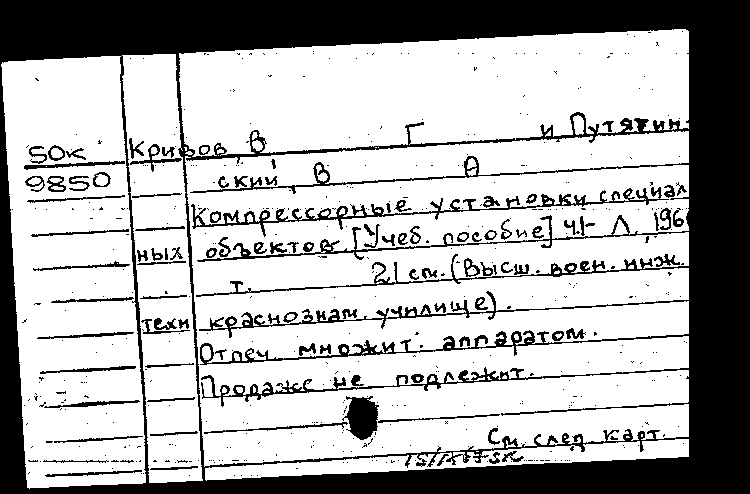 50к Кривов, В Г и Путятин-
9850 ский, В А
Компрессорные установки специаль
ных объектов. [Учеб. пособие] Ч.1- Л., 196
т. 21 см. (Высш. воен. инж.
техн краснознам. училище).
Отпеч. множит. аппаратом.
Продаже не подлежит.
См. след. карт.